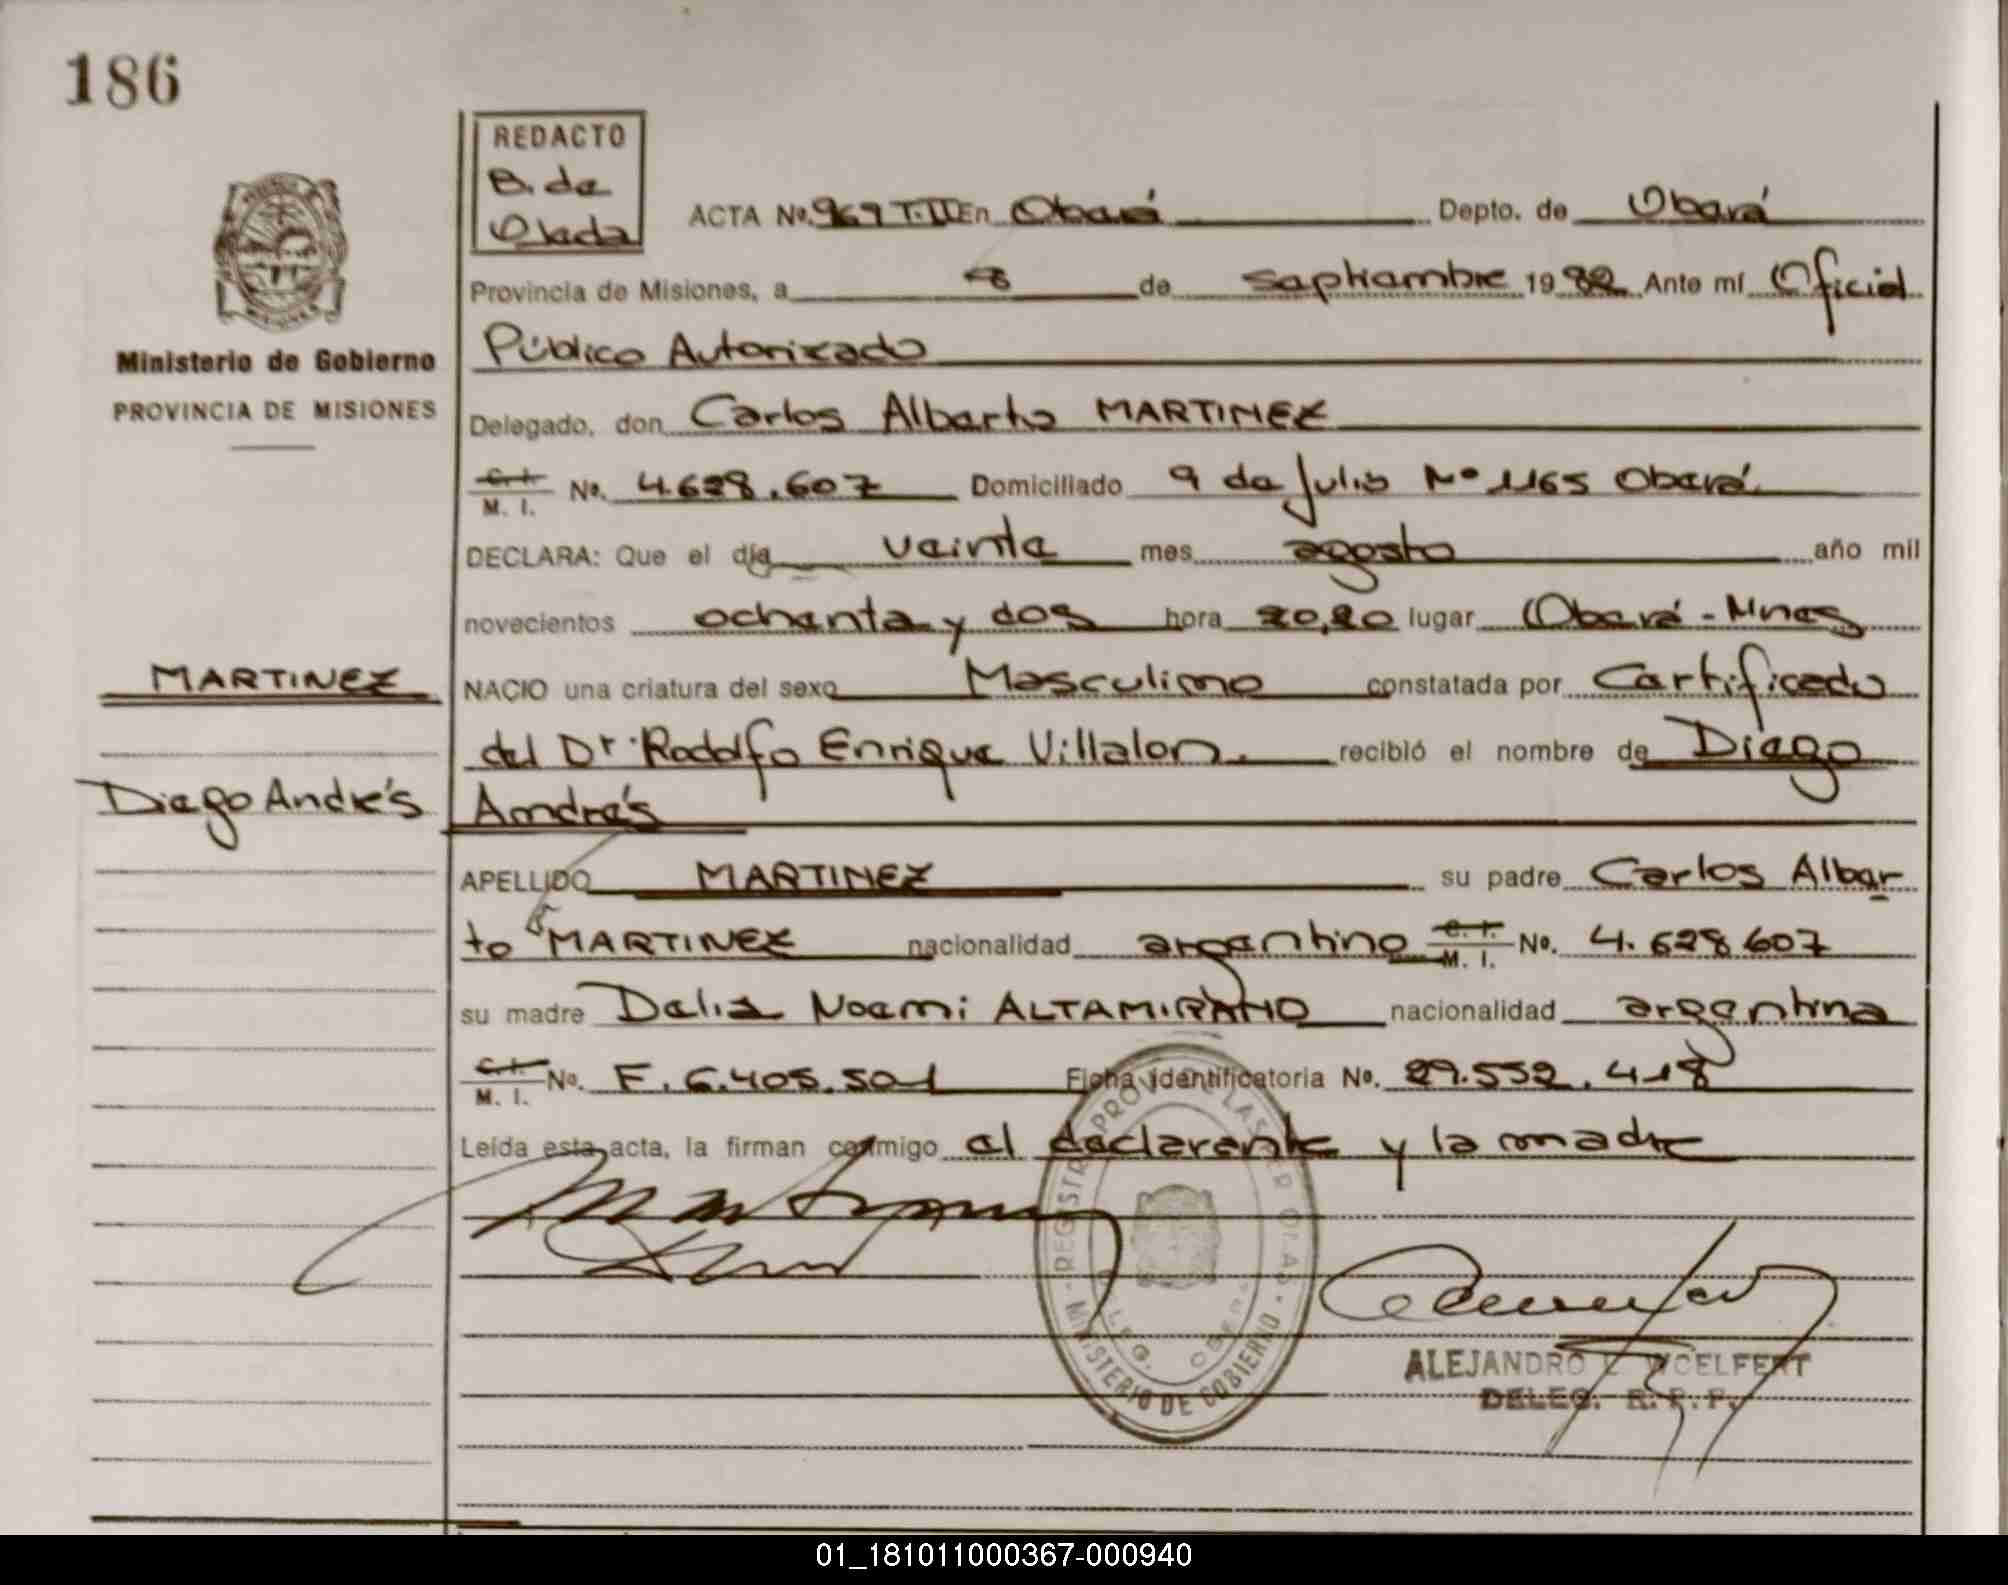 186
REDACTO
B. de
Ojeda
ACTA No. 969 T.II En Oberá Depto. de Oberá
Provincia de Misiones, a 8 de septiembre 1982 Ante mí Oficial
Público Autorizado
Ministerio de Gobierno
PROVINCIA DE MISIONES
Delegado, don Carlos Alberto MARTINEZ
C. I.
M. I. No. 4.628.607 Domiciliado 9 de Julio Nº 1165 Oberá
DECLARA: Que el día veinte mes agosto año mil
novecientos ochenta y dos hora 20,20 lugar Oberá - Mnes
MARTINEZ
NACIO una criatura del sexo Masculino constatada por Certificado
del Dr. Rodolfo Enrique Villalon. recibió el nombre de Diego
Diego Andrés
Andrés
APELLIDO MARTINEZ su padre Carlos Alber
to MARTINEZ nacionalidad argentino C. I. M. I. No. 4.628.607
su madre Delia Noemi ALTAMIRANO nacionalidad argentina
C. I.
M. I. No. F. 6.405.501 Ficha identificatoria No. 29.552.418
Leída esta acta, la firman conmigo el declarante y la madre
REGISTRO PROV. DE LAS PER OLAS
DELEG. OBERA
MINISTERIO DE GOBIERNO
ALEJANDRO WOELFERT
DELEG. R. P. P.
01_181011000367-000940